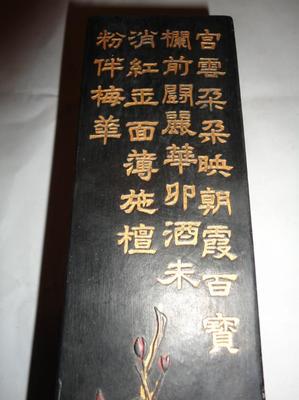 宮雲朵朵映朝霞百寶
欄前鬪麗華卯酒未
消紅玉面薄施檀
粉伴梅華